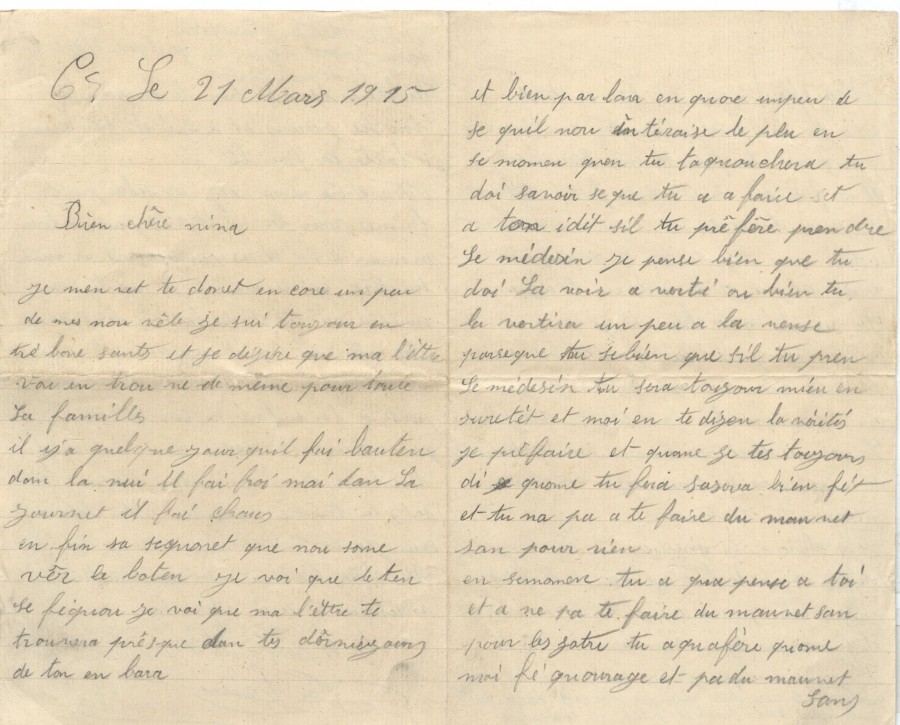 Le 21 Mars 1915
Bien chêre nina
je men vet te donet en core un peu
de mes nou vêle je sui toujour en
tré bone santé et je désire que ma l'éttre
vou en trou ne de même pour toute
La famille
il y'a quelque jour quil fai bauten
dan la nui il fai froi mai dan La
journet il fai chaus
en fin sa sequonet que nou some
vêr le boten je voi que le ten
se féquou je voi que ma l'éttre te
trouvera présque dan tes dôrniezjours
de ton en bara
et bien par lon en quore unpeu de
se quil nou intéraise le plu en
se momen quen tu taquouchera tu
doi savoir seque tu a a faire et
a idit sil tu préfêre prendre
Le médesin je pense bien que tu
doi La voir a vertié ou bien tu
la vertira un peu a la vense
parseque tu sebien que sil tu pren
Le médesin tu sera toujour mieu en
suretét et moi en te dizen la vérités
je préfaire et quome je tes toujours
di quome tu fera sasera bien fét
et tu na pa a te faire du mauvet
san pour rien
en semomen tu a qua pense a toi
et a ne pa te faire du mauvet san
pour les jotre tu a quafére quome
moi fé quourage et pa du mauvet
sans